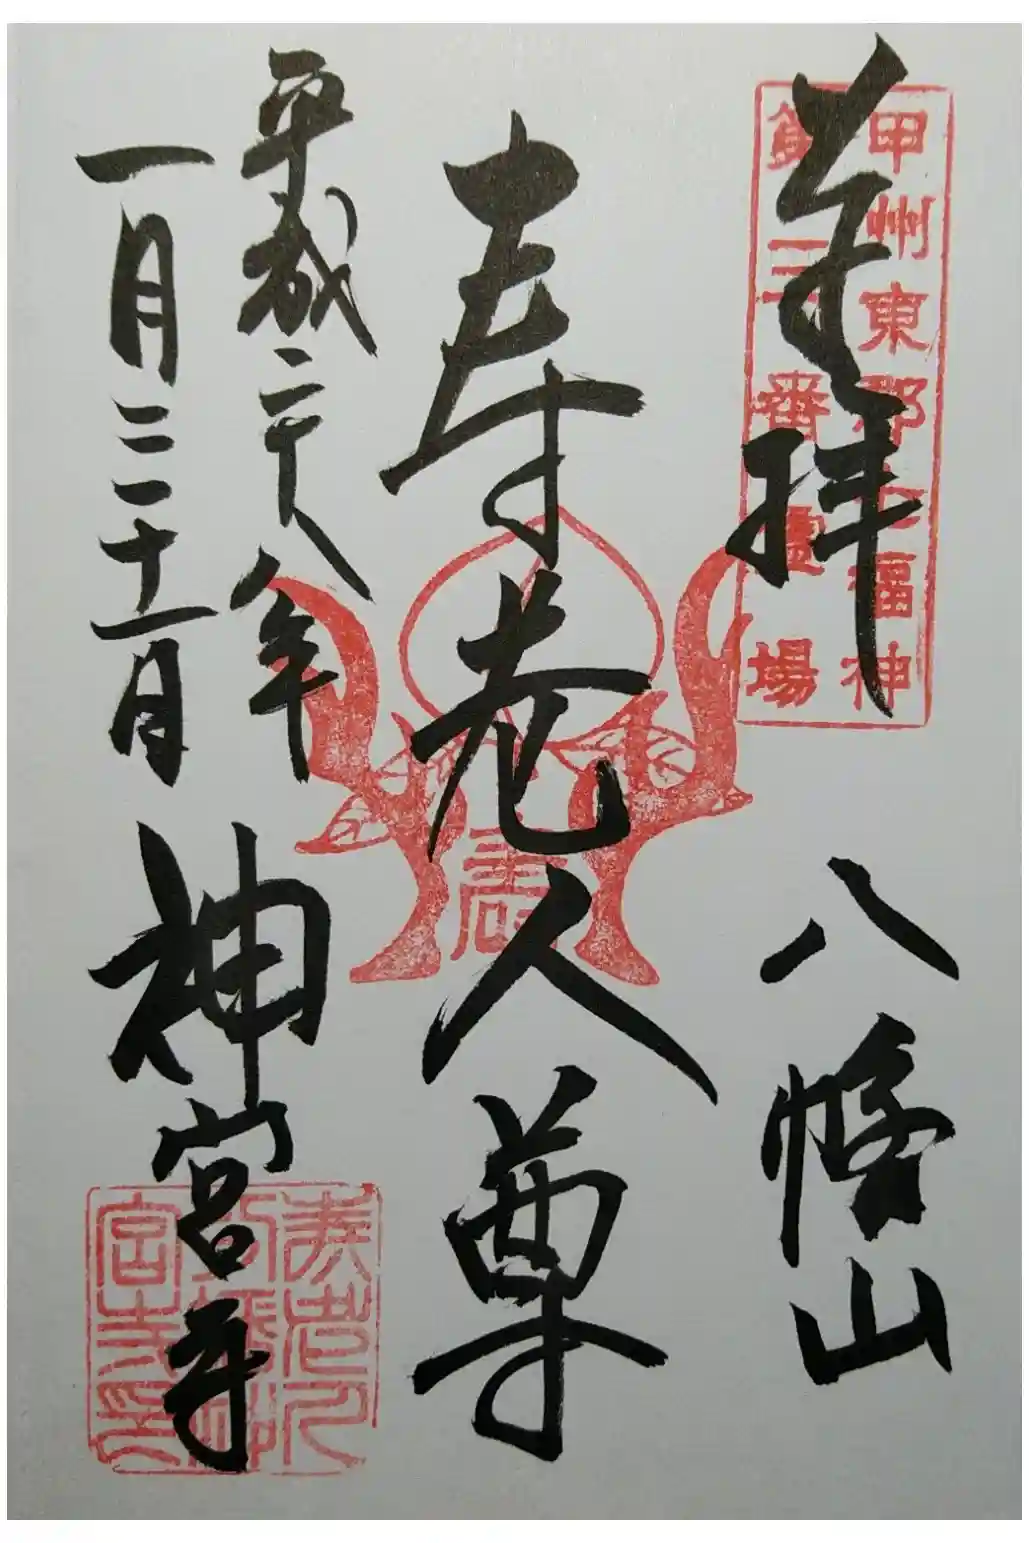 奉拝
甲州東郡七福神
第三番霊場
八幡山
寿老人尊
壽
平成二十八年
一月三十一日
神宮寺